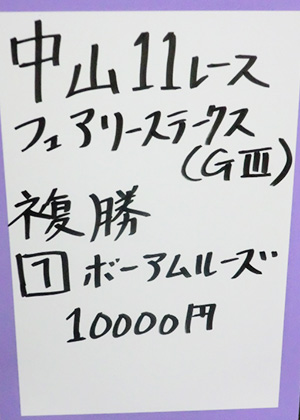 中山11レース
フェアリーステークス
(GⅢ)
複勝
1 ボーアムルーズ
10000円